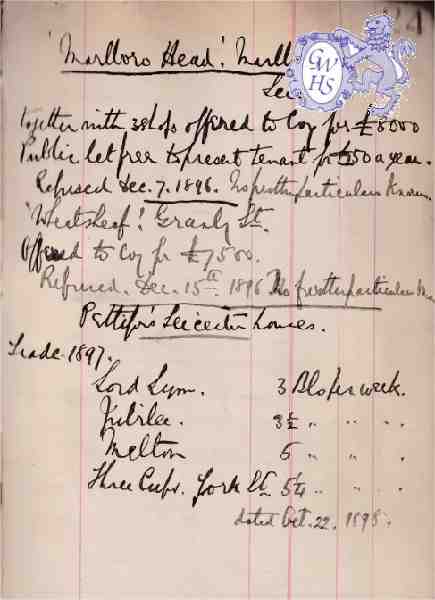 24
'Marlboro Head'. Marlb
Lei
together with 3 shops offered to Coy for £8000
Public let free to present tenant for £50 a year.
Refused Dec. 7. 1896. No further particulars known.
'Wheatsheaf'. Granby St.
Offered to Coy for £7500.
Refused. Dec. 15th 1896 No further particulars
Pettifor's Leicester houses.
Trade 1897.
Lord Lyon. 3 Bls per week.
Jubilee. 3½ " " "
Melton 5 " " "
Three Cups. York St. 5¼ " " "
dated Oct. 22. 1898.
GW
HS